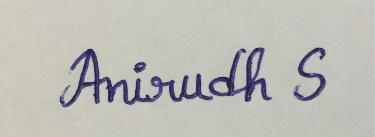 Anirudh S